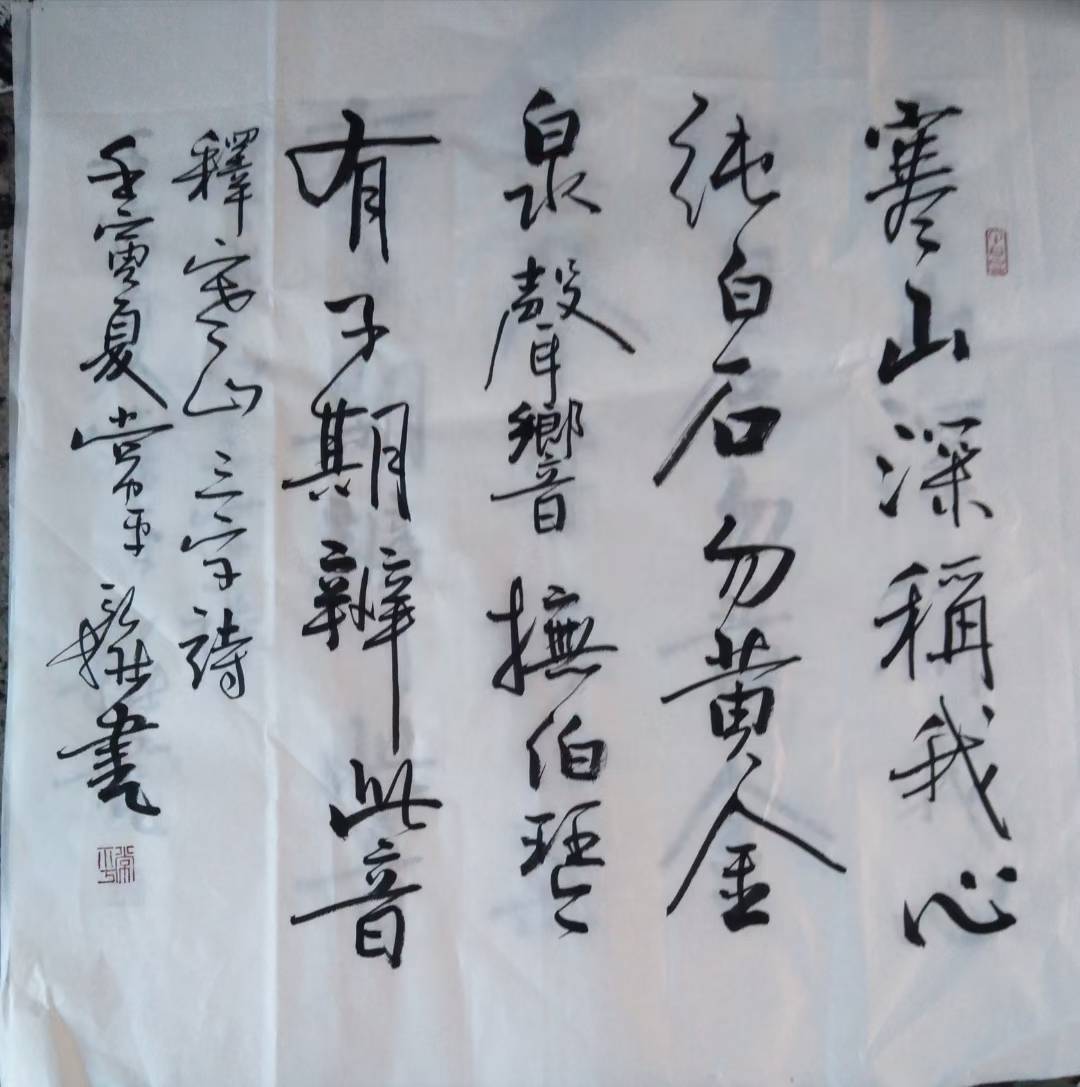 寒山深稱我心
純白石勿黃金
泉聲響撫伯琴
有子期辨此音
釋寒山三字詩
壬寅夏常平 書